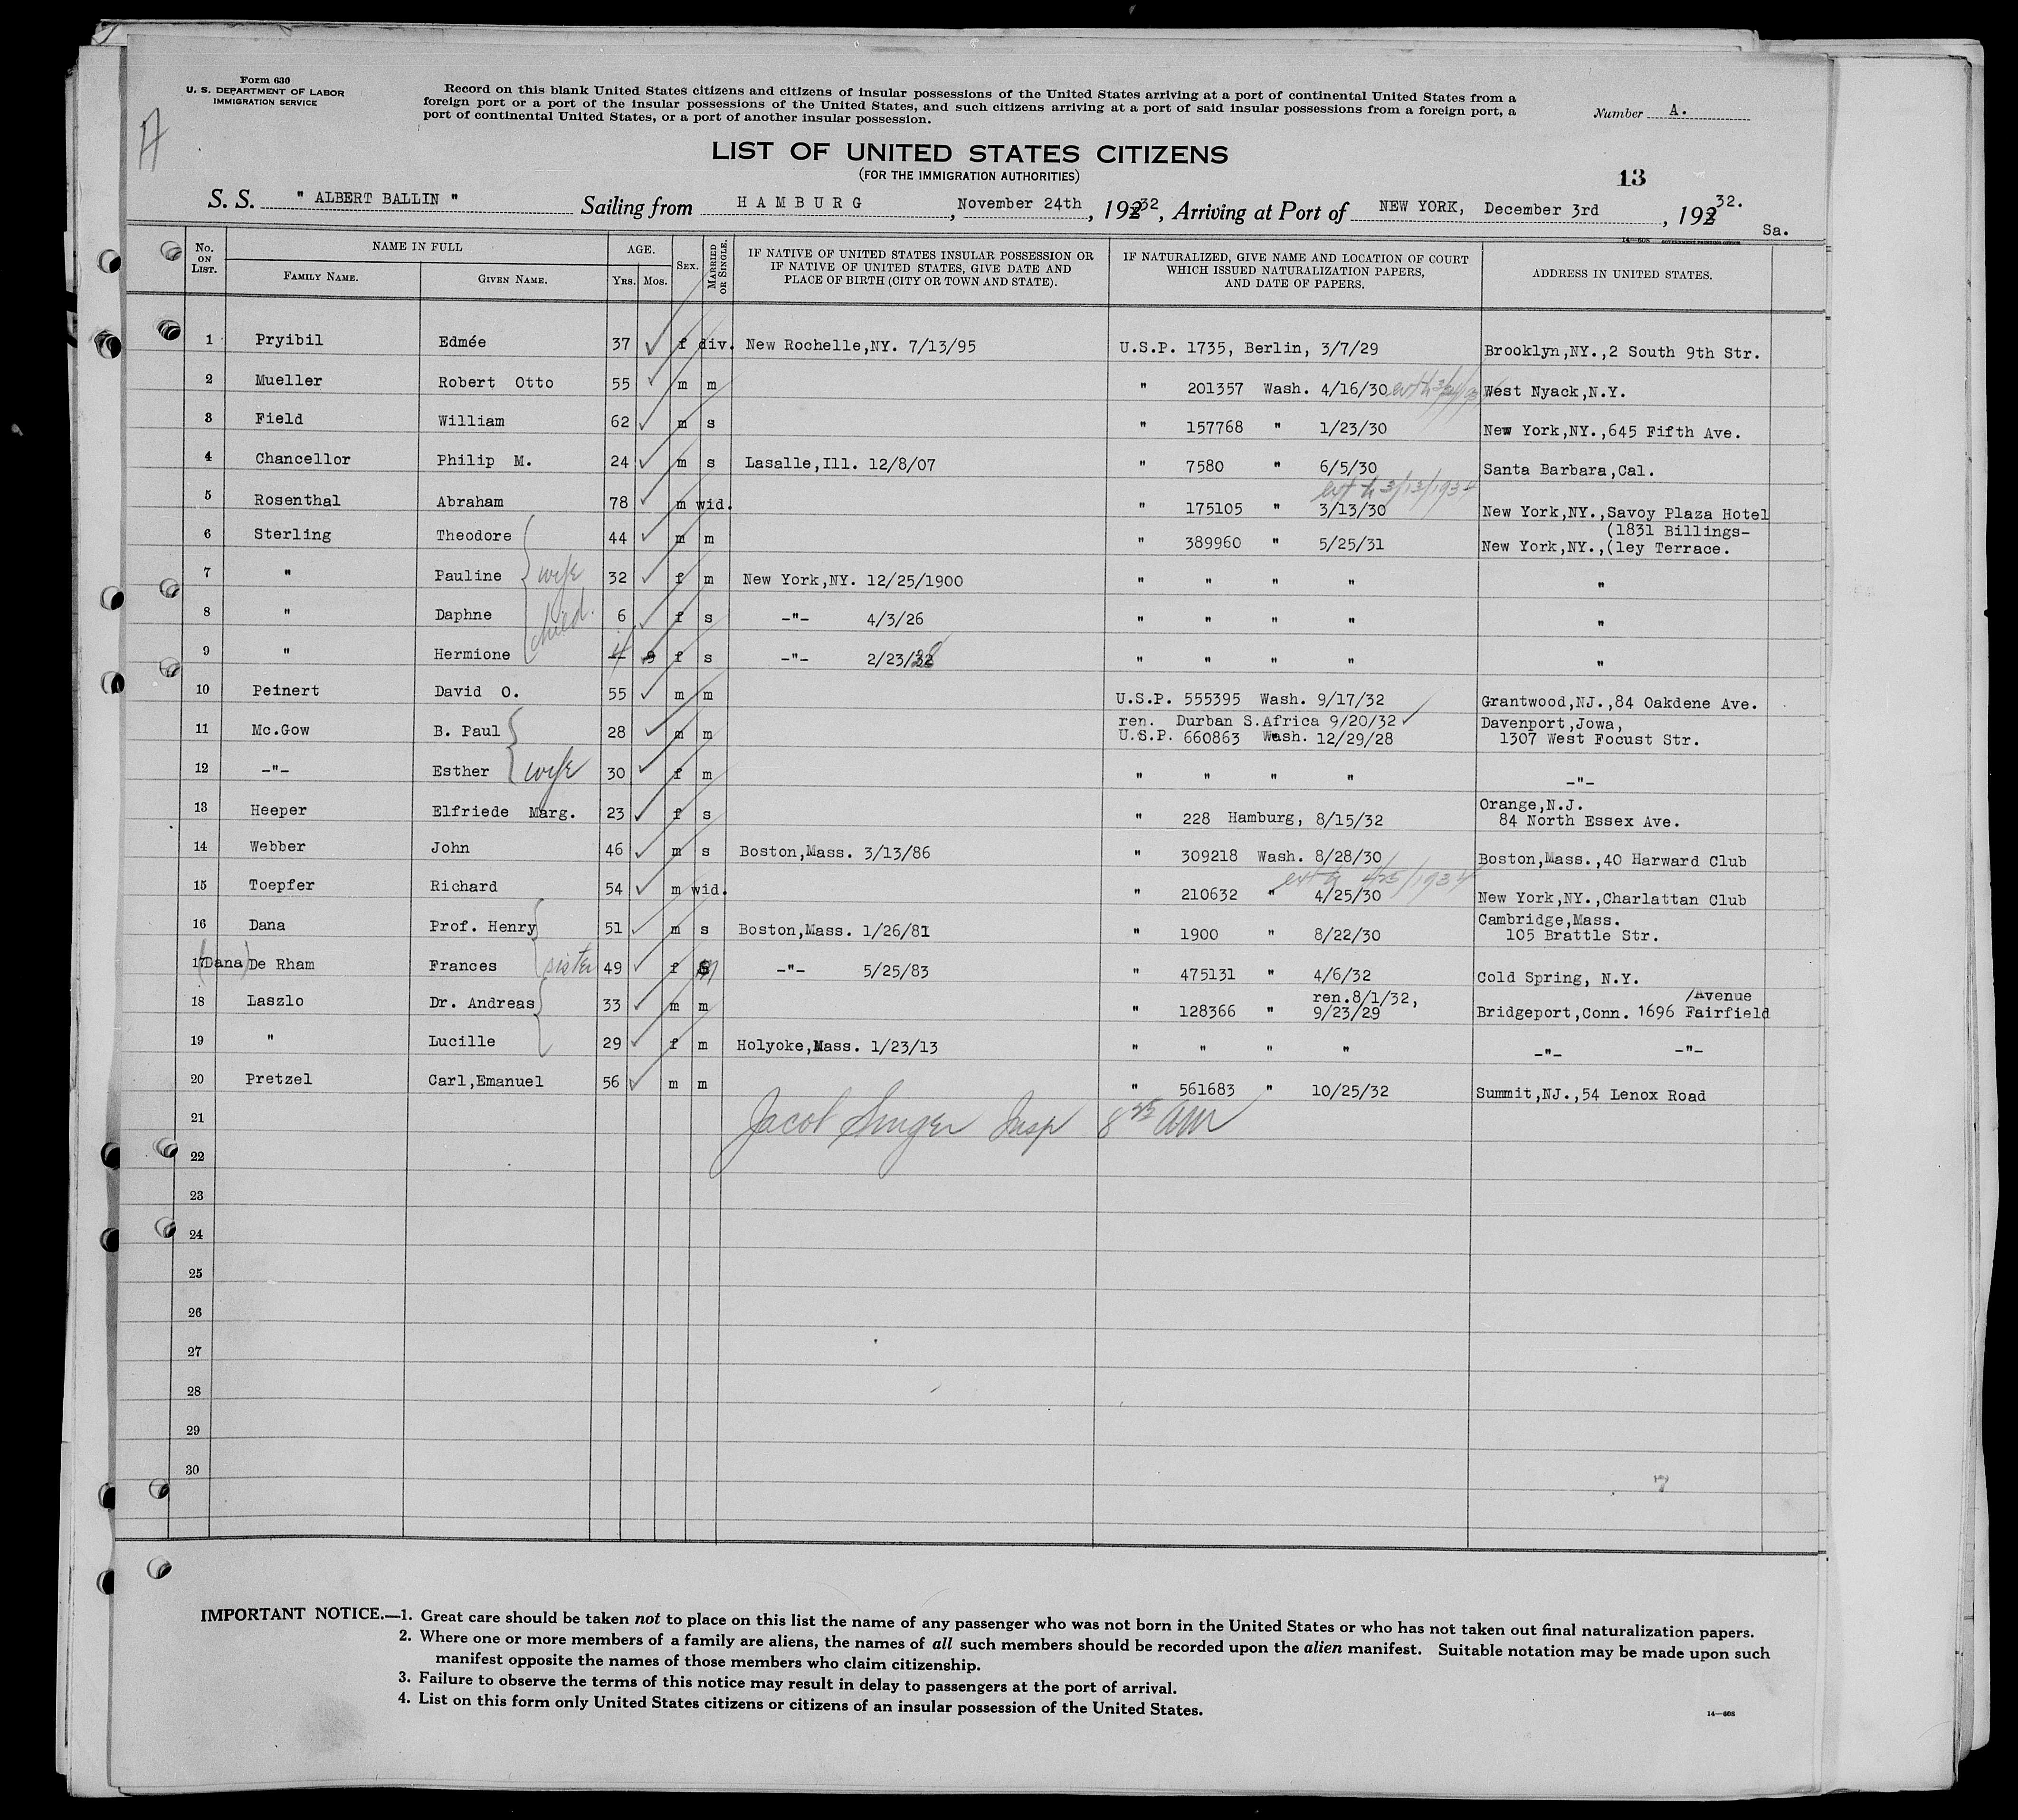 Form 630
U. S. DEPARTMENT OF LABOR
IMMIGRATION SERVICE
A
Record on this blank United States citizens and citizens of insular possessions of the United States arriving at a port of continental United States from a
foreign port or a port of the insular possessions of the United States, and such citizens arriving at a port of said insular possessions from a foreign port, a
port of continental United States, or a port of another insular possession.
Number A.
LIST OF UNITED STATES CITIZENS
(FOR THE IMMIGRATION AUTHORITIES)
13
S. S. " ALBERT BALLIN " Sailing from HAMBURG, November 24th, 19232, Arriving at Port of NEW YORK, December 3rd, 19232.
Sa.
14—608 GOVERNMENT PRINTING OFFICE
No. ON LIST. NAME IN FULL FAMILY NAME. GIVEN NAME. AGE. YRS. MOS. SEX. MARRIED OR SINGLE. IF NATIVE OF UNITED STATES INSULAR POSSESSION OR IF NATIVE OF UNITED STATES, GIVE DATE AND PLACE OF BIRTH (CITY OR TOWN AND STATE). IF NATURALIZED, GIVE NAME AND LOCATION OF COURT WHICH ISSUED NATURALIZATION PAPERS, AND DATE OF PAPERS. ADDRESS IN UNITED STATES.
1 Pryibil Edmée 37 f div. New Rochelle,NY. 7/13/95 U.S.P. 1735, Berlin, 3/7/29 Brooklyn,NY.,2 South 9th Str.
2 Mueller Robert Otto 55 m m " 201357 Wash. 4/16/30 West Nyack,N.Y.
3 Field William 62 m s " 157768 " 1/23/30 New York,NY.,645 Fifth Ave.
4 Chancellor Philip M. 24 m s Lasalle,Ill. 12/8/07 " 7580 " 6/5/30 Santa Barbara,Cal.
ext to 3/13/1934
5 Rosenthal Abraham 78 m wid. " 175105 " 3/13/30 New York,NY.,Savoy Plaza Hotel
6 Sterling Theodore 44 m m " 389960 " 5/25/31 New York,NY.,(1831 Billings-
(ley Terrace.
7 " Pauline wife 32 f m New York,NY. 12/25/1900 " " " " "
8 " Daphne child. 6 f s -"- 4/3/26 " " " " "
9 " Hermione 4 9 f s -"- 2/23/3228 " " " " "
10 Peinert David O. 55 m m U.S.P. 555395 Wash. 9/17/32 Grantwood,NJ.,84 Oakdene Ave.
ren. Durban S.Africa 9/20/32 Davenport,Jowa,
11 Mc.Gow B. Paul 28 m m U.S.P. 660863 Wash. 12/29/28 1307 West Focust Str.
12 -"- Esther wife 30 f m " " " " -"-
Orange,N.J.
13 Heeper Elfriede Marg. 23 f s " 228 Hamburg, 8/15/32 84 North Essex Ave.
14 Webber John 46 m s Boston,Mass. 3/13/86 " 309218 Wash. 8/28/30 Boston,Mass.,40 Harward Club
ext to 4/25/1934
15 Toepfer Richard 54 m wid. " 210632 " 4/25/30 New York,NY.,Charlattan Club
Cambridge,Mass.
16 Dana Prof. Henry 51 m s Boston,Mass. 1/26/81 " 1900 " 8/22/30 105 Brattle Str.
17 (Dana) De Rham Frances sister 49 f m -"- 5/25/83 " 475131 " 4/6/32 Cold Spring, N.Y.
ren.8/1/32, /Avenue
18 Laszlo Dr. Andreas 33 m m " 128366 " 9/23/29 Bridgeport,Conn. 1696 Fairfield
19 " Lucille 29 f m Holyoke,Mass. 1/23/13 " " " " -"- -"-
20 Pretzel Carl,Emanuel 56 m m " 561683 " 10/25/32 Summit,NJ.,54 Lenox Road
21 Jacob Singer Insp 8 45 AM
22
23
24
25
26
27
28
29
30
7
IMPORTANT NOTICE.—1. Great care should be taken not to place on this list the name of any passenger who was not born in the United States or who has not taken out final naturalization papers.
2. Where one or more members of a family are aliens, the names of all such members should be recorded upon the alien manifest. Suitable notation may be made upon such
manifest opposite the names of those members who claim citizenship.
3. Failure to observe the terms of this notice may result in delay to passengers at the port of arrival.
4. List on this form only United States citizens or citizens of an insular possession of the United States.
14—608